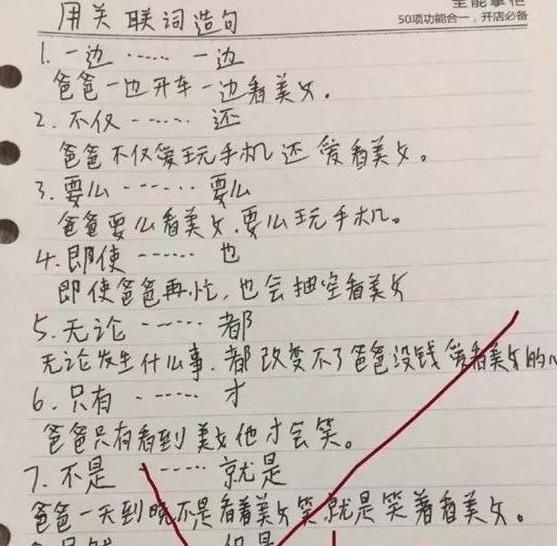 全能掌柜
50项功能合一，开店必备
用关联词造句
1. 一边 …… 一边
爸爸一边开车一边看美女。
2. 不仅 …… 还
爸爸不仅爱玩手机还爱看美女。
3. 要么 …… 要么
爸爸要么看美女.要么玩手机。
4. 即使 …… 也
即使爸爸再忙，也会抽空看美女
5. 无论 …… 都
无论发生什么事.都改变不了爸爸没钱爱看美女的
6. 只有 …… 才
爸爸只有看到美女他才会笑。
7. 不是 …… 就是
爸爸一天到晚不是看着美女笑就是笑着看美女。